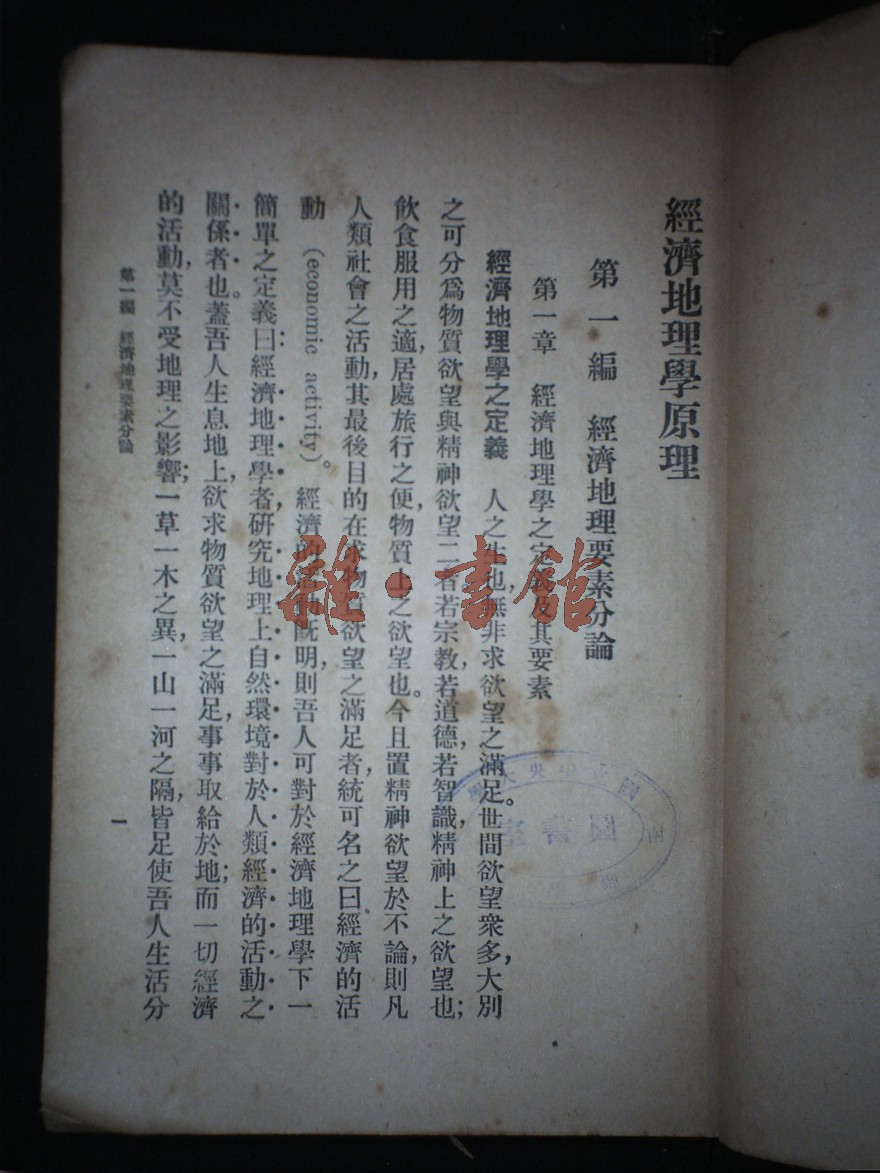 經濟地理學原理
第一編　經濟地理要素分論
第一章　經濟地理學之定義及其要素
經濟地理學之定義　人之生也，無非求欲望之滿足。世間欲望衆多，大別
之可分爲物質欲望與精神欲望二者若宗教，若道德，若智識，精神上之欲望也；
飲食服用之適，居處旅行之便，物質上之欲望也。今且置精神欲望於不論，則凡
人類社會之活動，其最後目的在求物質欲望之滿足者，統可名之曰經濟的活
動（economic activity）。經濟的活動既明，則吾人可對於經濟地理學下一
簡單之定義曰：經濟地理學者，研究地理上自然環境對於人類經濟的活動之
關係者也。蓋吾人生息地上，欲求物質欲望之滿足，事事取給於地；而一切經濟
的活動，莫不受地理之影響；一草一木之異，一山一河之隔，皆足使吾人生活分
第一編　經濟地理要素分論
一
雜·書館